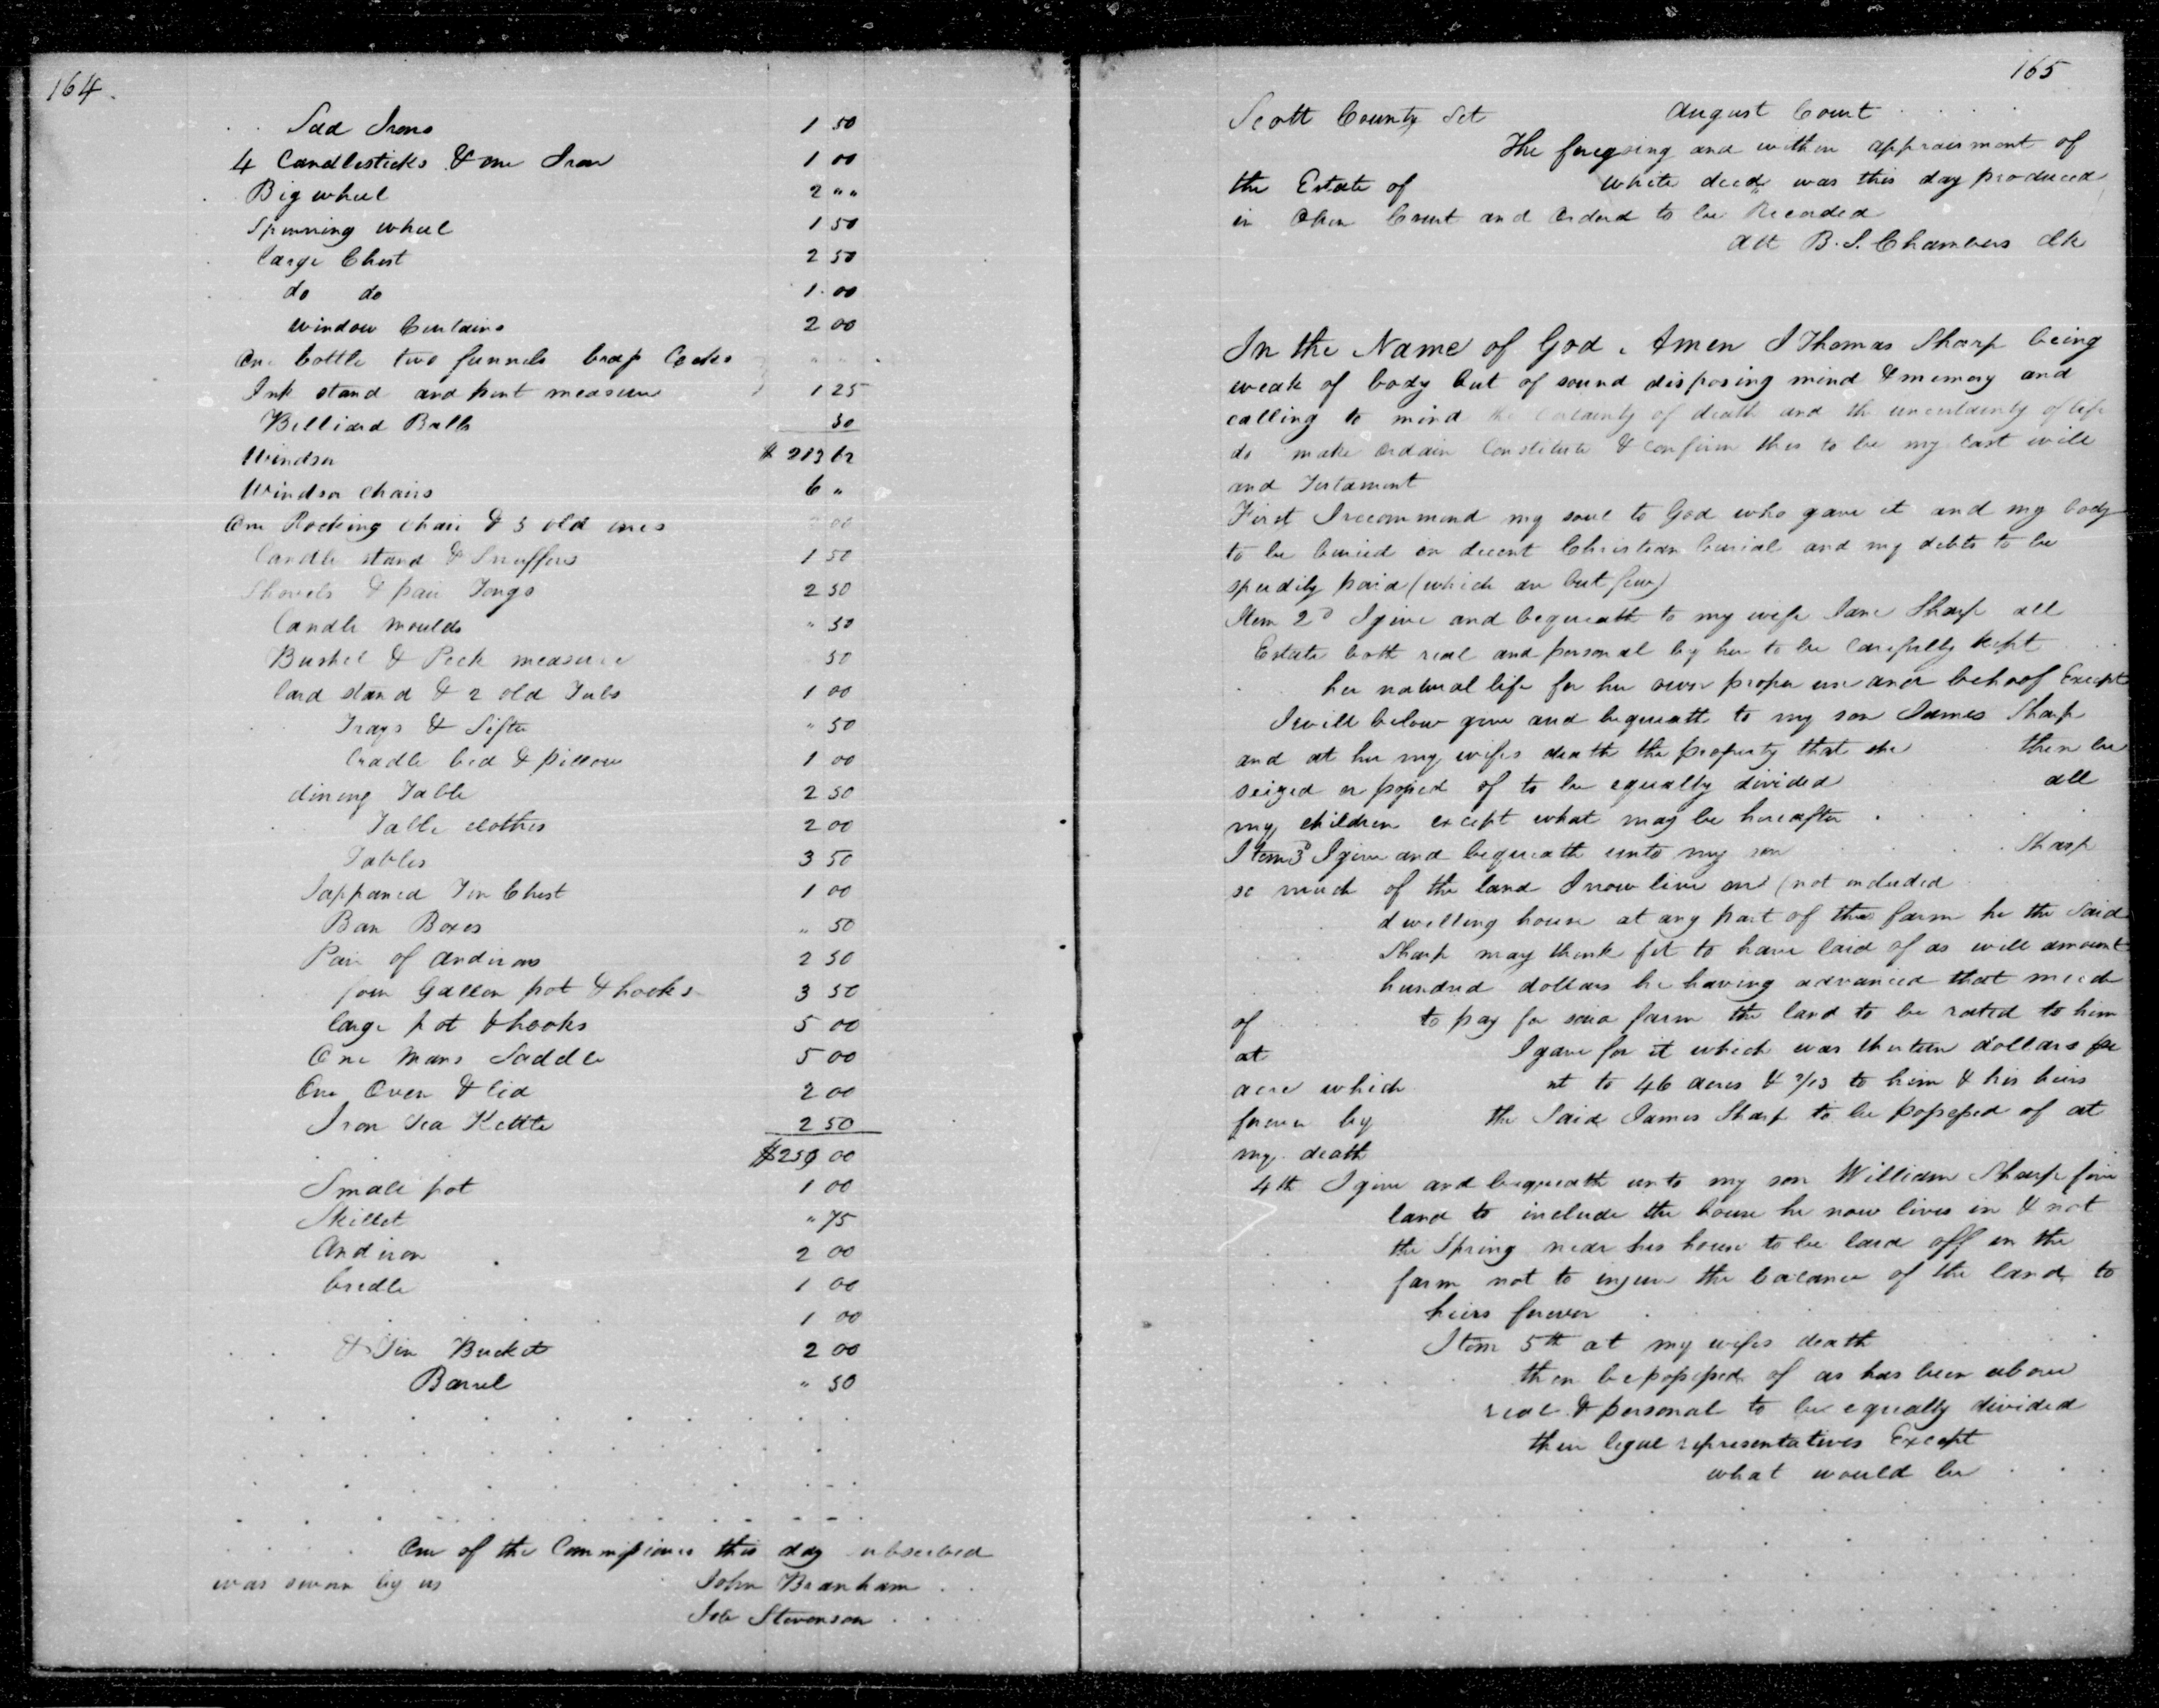 164.
Sad Irons 1 50
4 Candlesticks & one Iron 1 00
Big wheel 2 " "
Spinning wheel 1 50
large Chest 2 50
do do 1.00
window Curtains 2 00
One bottle two funnels brass Cocks " "
Ink stand and pint measure 1 25
Billiard Balls 50
Windsor $ 213 62
Windsor chairs 6 "
One Rocking chair & 3 old ones 00
Candle stand & Snuffers 1 50
Shovels & pair Tongs 2 50
Candle moulds " 50
Bushel & Peck measure 50
lard stand & 2 old Tubs 1 00
Trays & Sifter " 50
Cradle bed & pillow 1 00
dining Table 2 50
Table clothes 2 00
Tables 3 50
Jappaned Tin Chest 1 00
Ban Boxes " 50
Pair of andirons 2 50
four Gallon pot & hooks 3 50
large pot & hooks 5 00
One Mans Saddle 5 00
One Oven & lid 2 00
Iron Tea Kettle 2 50
00
Small pot 1 00
Skillet " 75
Andiron 2 00
bridle 1 00
1 00
& Tin Bucket 2 00
Barrel " 50
One of the Commissioners this day subscribed
was sworn by us John Branham
Job Stevenson
165
Scott County Sct August Court
The foregoing and within appraisment of
the Estate of White decd was this day produced
in Open Court and Ordered to be Recorded
Att B. S. Chambers Clk
In the Name of God, Amen I Thomas Sharp being
weak of body but of sound disposing mind & memory and
calling to mind the certainty of death and the uncertainty of life
do make ordain Constitute & confirm this to be my last will
and Testament
First I recommend my soul to God who gave it and my body
to be buried in decent Christian burial and my debts to be
speedily paid (which are but few)
Item 2d I give and bequeath to my wife Jane Sharp all
Estate both real and personal by her to be carefully kept
her natural life for her own proper use and behoof Except
I will below give and bequeath to my son James Sharp
and at her my wifes death the property that she then be
seized or possed of to be equally divided all
my children except what may be hereafter
Item 3d I give and bequeath unto my son Sharp
so much of the land I now live on (not included
dwelling house at any part of the farm he the Said
Sharp may think fit to have laid of as will amount
hundred dollars he having advanced that much
of to pay for said farm the land to be rated to him
at I gave for it which was thirteen dollars per
acre which nt to 46 acres & 2/13 to him & his heirs
forever by the Said James Sharp to be possessed of at
my death
4th I give and bequeath unto my son William Sharp five
land to include the house he now lives in & not
the Spring near his house to be laid off in the
farm not to injure the balance of the land to
heirs forever
Item 5th at my wifes death
then be possessed of as has been above
real & personal to be equally divided
their legal representatives Except
what would be